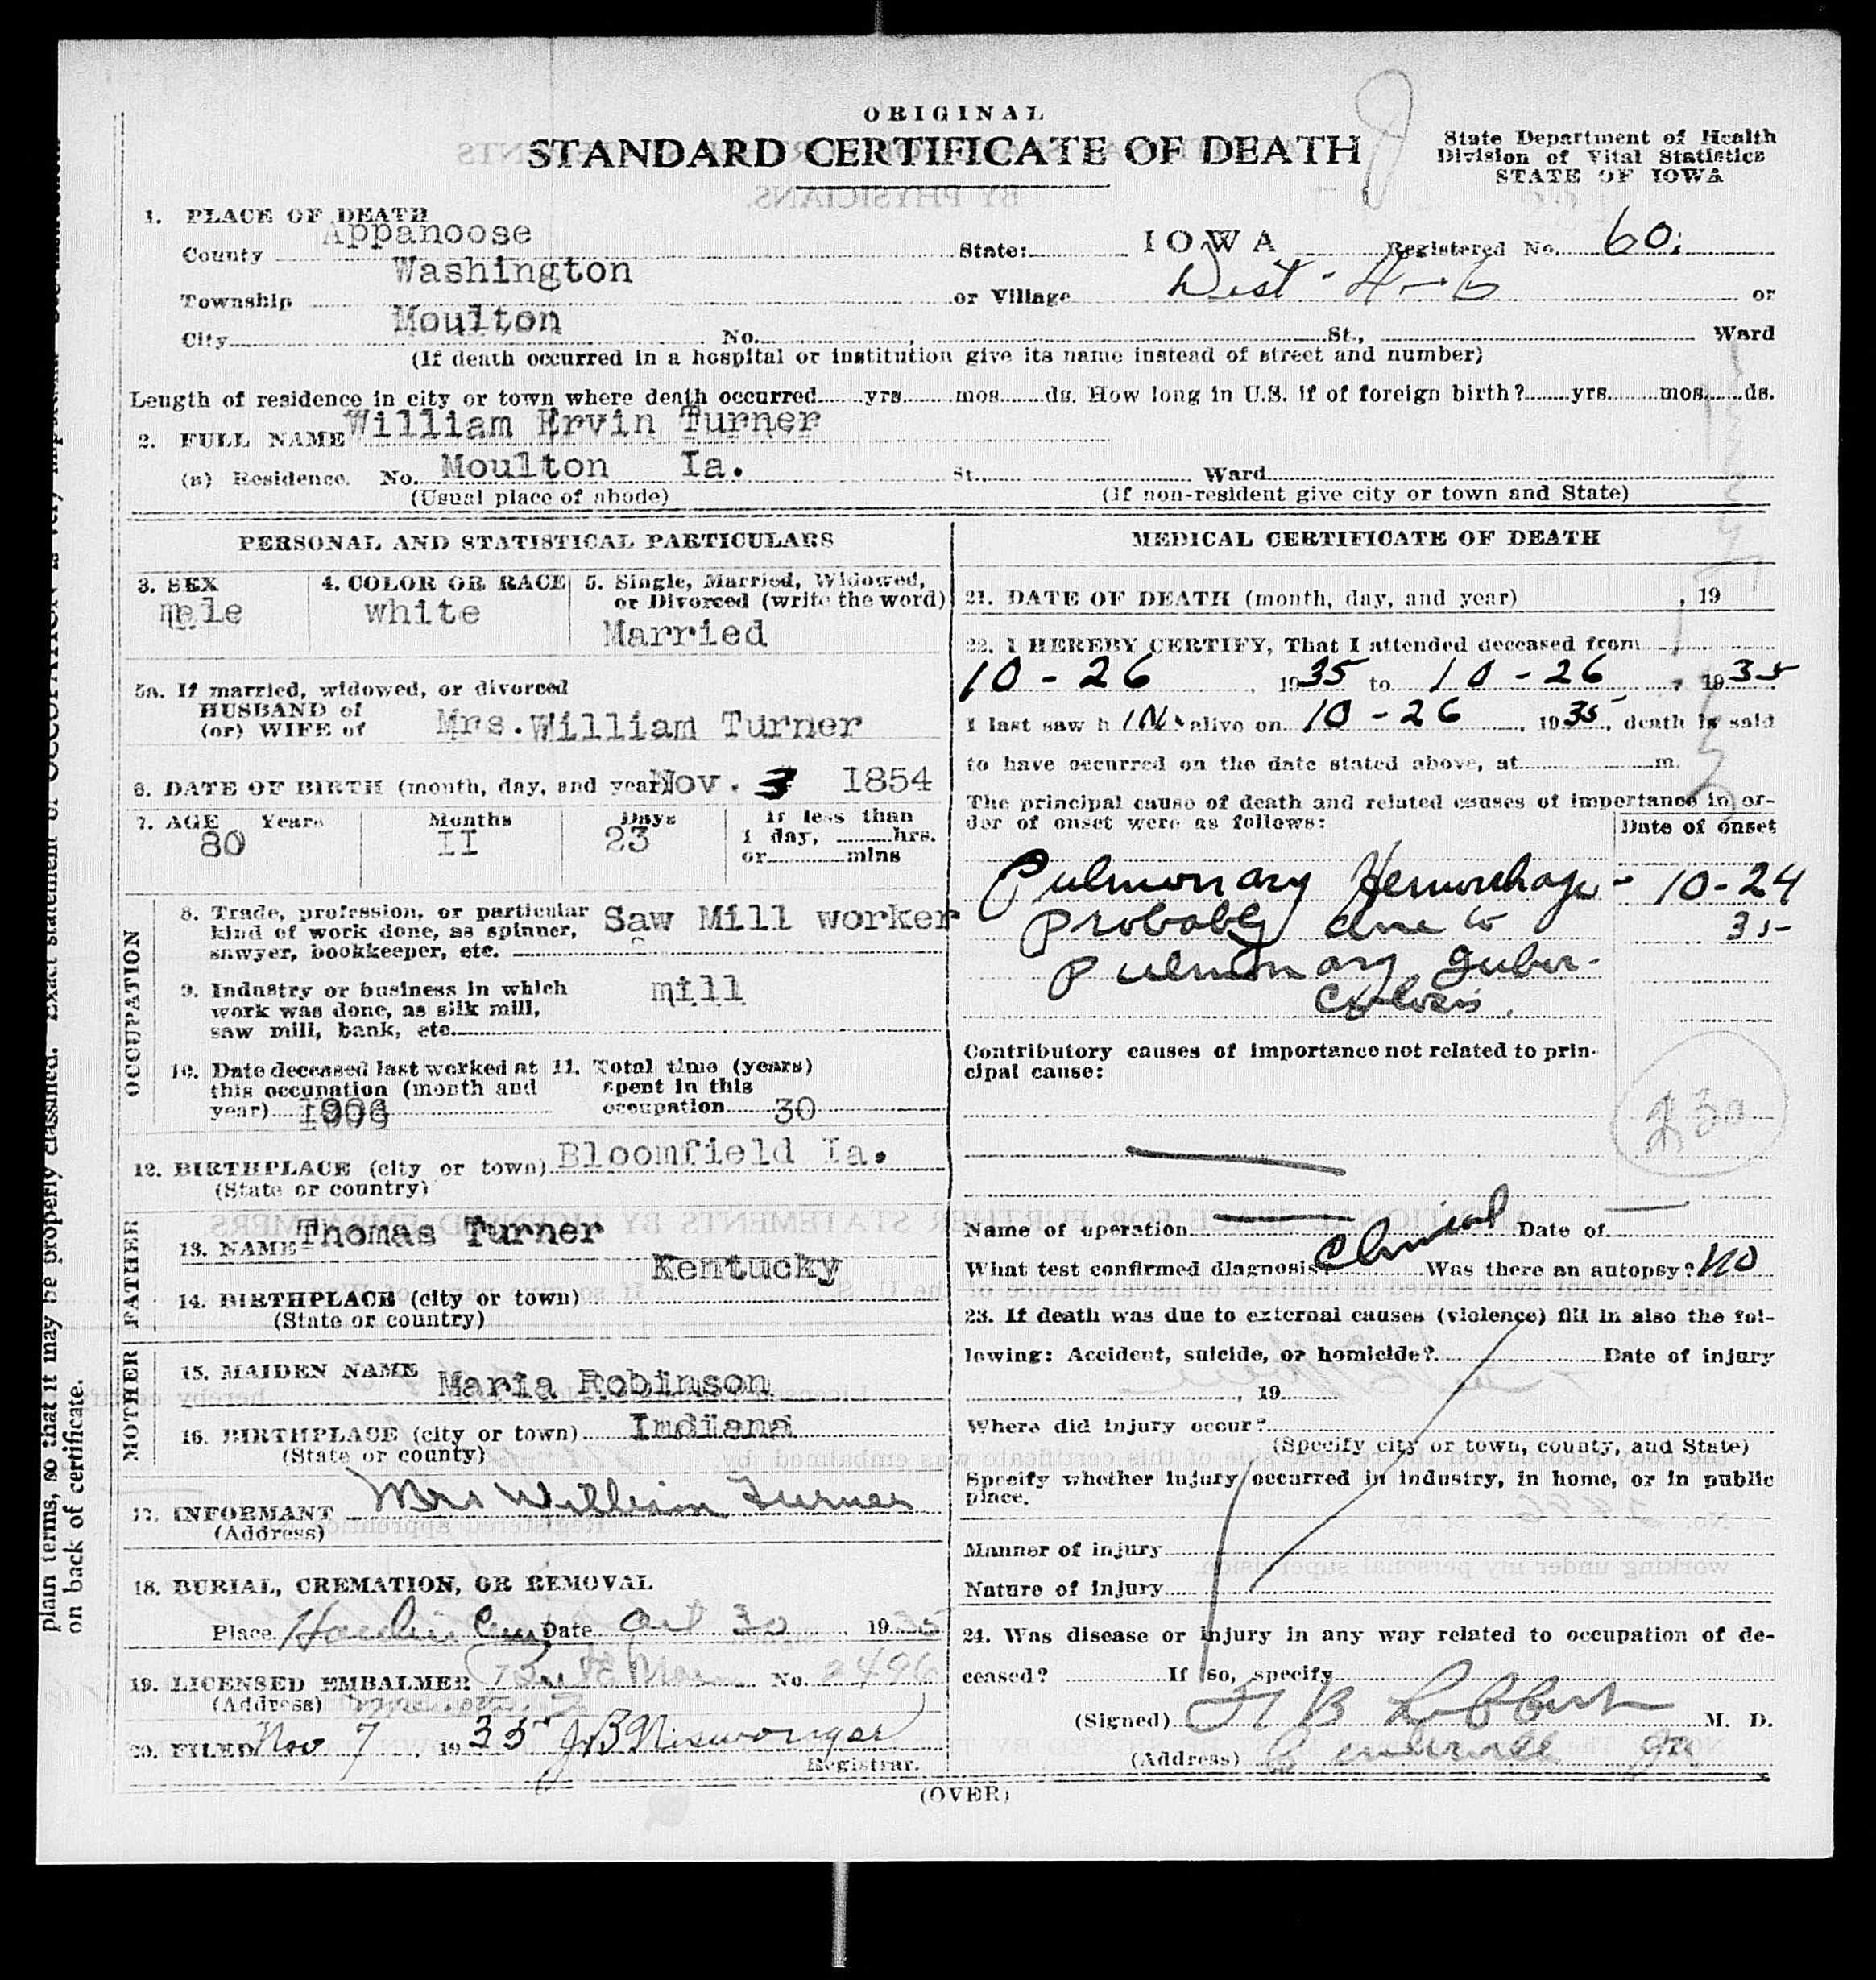 ORIGINAL
STANDARD CERTIFICATE OF DEATH
State Department of Health
Division of Vital Statistics
STATE OF IOWA
1. PLACE OF DEATH
County Appanoose State: IOWA Registered No. 60
Township Washington or Village Dist - 4-6 or
City Moulton No. St., Ward
(If death occurred in a hospital or institution give its name instead of street and number)
Length of residence in city or town where death occurred yrs. mos. ds. How long in U.S. if of foreign birth? yrs. mos. ds.
2. FULL NAME William Ervin Turner
(a) Residence. No. Moulton Ia. St., Ward
(Usual place of abode) (If non-resident give city or town and State)
PERSONAL AND STATISTICAL PARTICULARS
3. SEX 4. COLOR OR RACE 5. Single, Married, Widowed,
or Divorced (write the word)
male white Married
5a. If married, widowed, or divorced
HUSBAND of
(or) WIFE of Mrs. William Turner
6. DATE OF BIRTH (month, day, and year) Nov. 3 1854
7. AGE Years Months Days If less than
80 II 23 1 day, hrs.
or mins
OCCUPATION
8. Trade, profession, or particular
kind of work done, as spinner,
sawyer, bookkeeper, etc. Saw Mill worker
9. Industry or business in which
work was done, as silk mill,
saw mill, bank, etc. mill
10. Date deceased last worked at
this occupation (month and
year)
11. Total time (years)
spent in this
occupation 30
12. BIRTHPLACE (city or town) Bloomfield Ia.
(State or country)
FATHER
13. NAME Thomas Turner
14. BIRTHPLACE (city or town) Kentucky
(State or country)
MOTHER
15. MAIDEN NAME Maria Robinson
16. BIRTHPLACE (city or town) Indiana
(State or county)
17. INFORMANT Mrs William Turner
(Address)
18. BURIAL, CREMATION, OR REMOVAL
Place Date Oct 30, 1935
19. LICENSED EMBALMER No. 2496
(Address)
20. FILED Nov 7, 1935 J B Niswonger
Registrar.
MEDICAL CERTIFICATE OF DEATH
21. DATE OF DEATH (month, day, and year) , 19
22. I HEREBY CERTIFY, That I attended deceased from
10-26, 1935 to 10-26, 1935
I last saw h im alive on 10-26, 1935, death is said
to have occurred on the date stated above, at m.
The principal cause of death and related causes of importance in or-
der of onset were as follows: Date of onset
Pulmonary Hemorrhage - 10-24
probably due to 35
pulmonary Tuber-
culosis.
Contributory causes of importance not related to prin-
cipal cause:
Name of operation Date of
What test confirmed diagnosis? Clinical Was there an autopsy? No
23. If death was due to external causes (violence) fill in also the fol-
lowing: Accident, suicide, or homicide? Date of injury
, 19
Where did injury occur?
(Specify city or town, county, and State)
Specify whether injury occurred in industry, in home, or in public
place.
Manner of injury
Nature of injury
24. Was disease or injury in any way related to occupation of de-
ceased? If so, specify
(Signed) M. D.
(Address)
(OVER)
plain terms, so that it may be properly classified. Exact statement of OCCUPATION is very important.
on back of certificate.